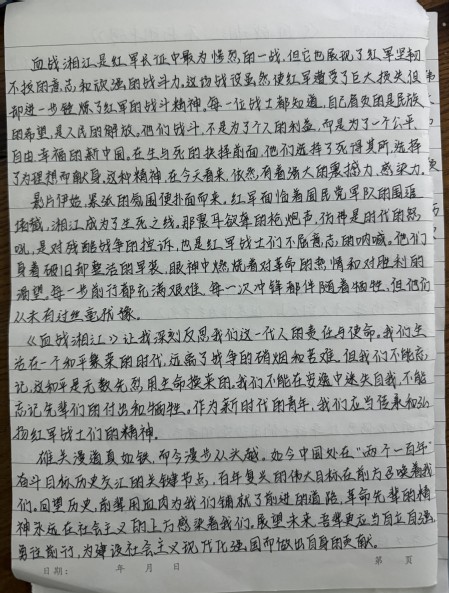 血战湘江是红军长征中最为惨烈的一战,但它也展现了红军坚韧
不拔的意志和顽强的战斗力。这场战役虽然使红军遭受了巨大损失但
却进一步锤炼了红军的战斗精神。每一位战士都知道,自己肩负的是民族
的希望,是人民的解放。他们战斗,不是为了个人的利益,而是为了一个公平、
自由幸福的新中国。在生与死的抉择前面,他们选择了死得其所选择
了为理想而献身,这种精神,在今天看来,依然有着强大的震撼力、感染力。
影片伊始,紧张的氛围便扑面而来,红军面临着国民党军队的围追
堵截,湘江成为了生死之线。那震耳欲聋的枪炮声,仿佛是时代的怒
吼,是对残酷战争的控诉,也是红军战士们不屈意志的呐喊。他们
身着破旧却整洁的军装,眼神中燃烧着对革命的热情和对胜利的
渴望。每一步前行都充满艰难,每一次冲锋都伴随着牺牲,但他们
从未有过丝毫犹豫。
《血战湘江》让我深刻反思我们这一代人的责任与使命。我们生
活在一个和平繁荣的时代,远离了战争的硝烟和苦难。但我们不能忘
记,这和平是无数先烈用生命换来的。我们不能在安逸中迷失自我,不能
忘记先辈们的付出和牺牲。作为新时代的青年,我们应当传承和弘
扬红军战士们的精神。
雄关漫道真如铁,而今漫步从头越。如今中国处在“两个一百年”
奋斗目标历史交汇的关键节点,百年复兴的伟大目标在前方召唤着我
们。回望历史,前辈用血肉为我们铺就了前进的道路,革命先辈的精
神永远在社会主义的上方感染着我们,展望未来,吾辈更应当自立自强,
勇往前行,为建设社会主义现代化强国而做出自身的贡献。
日期: 年 月 日 第 页